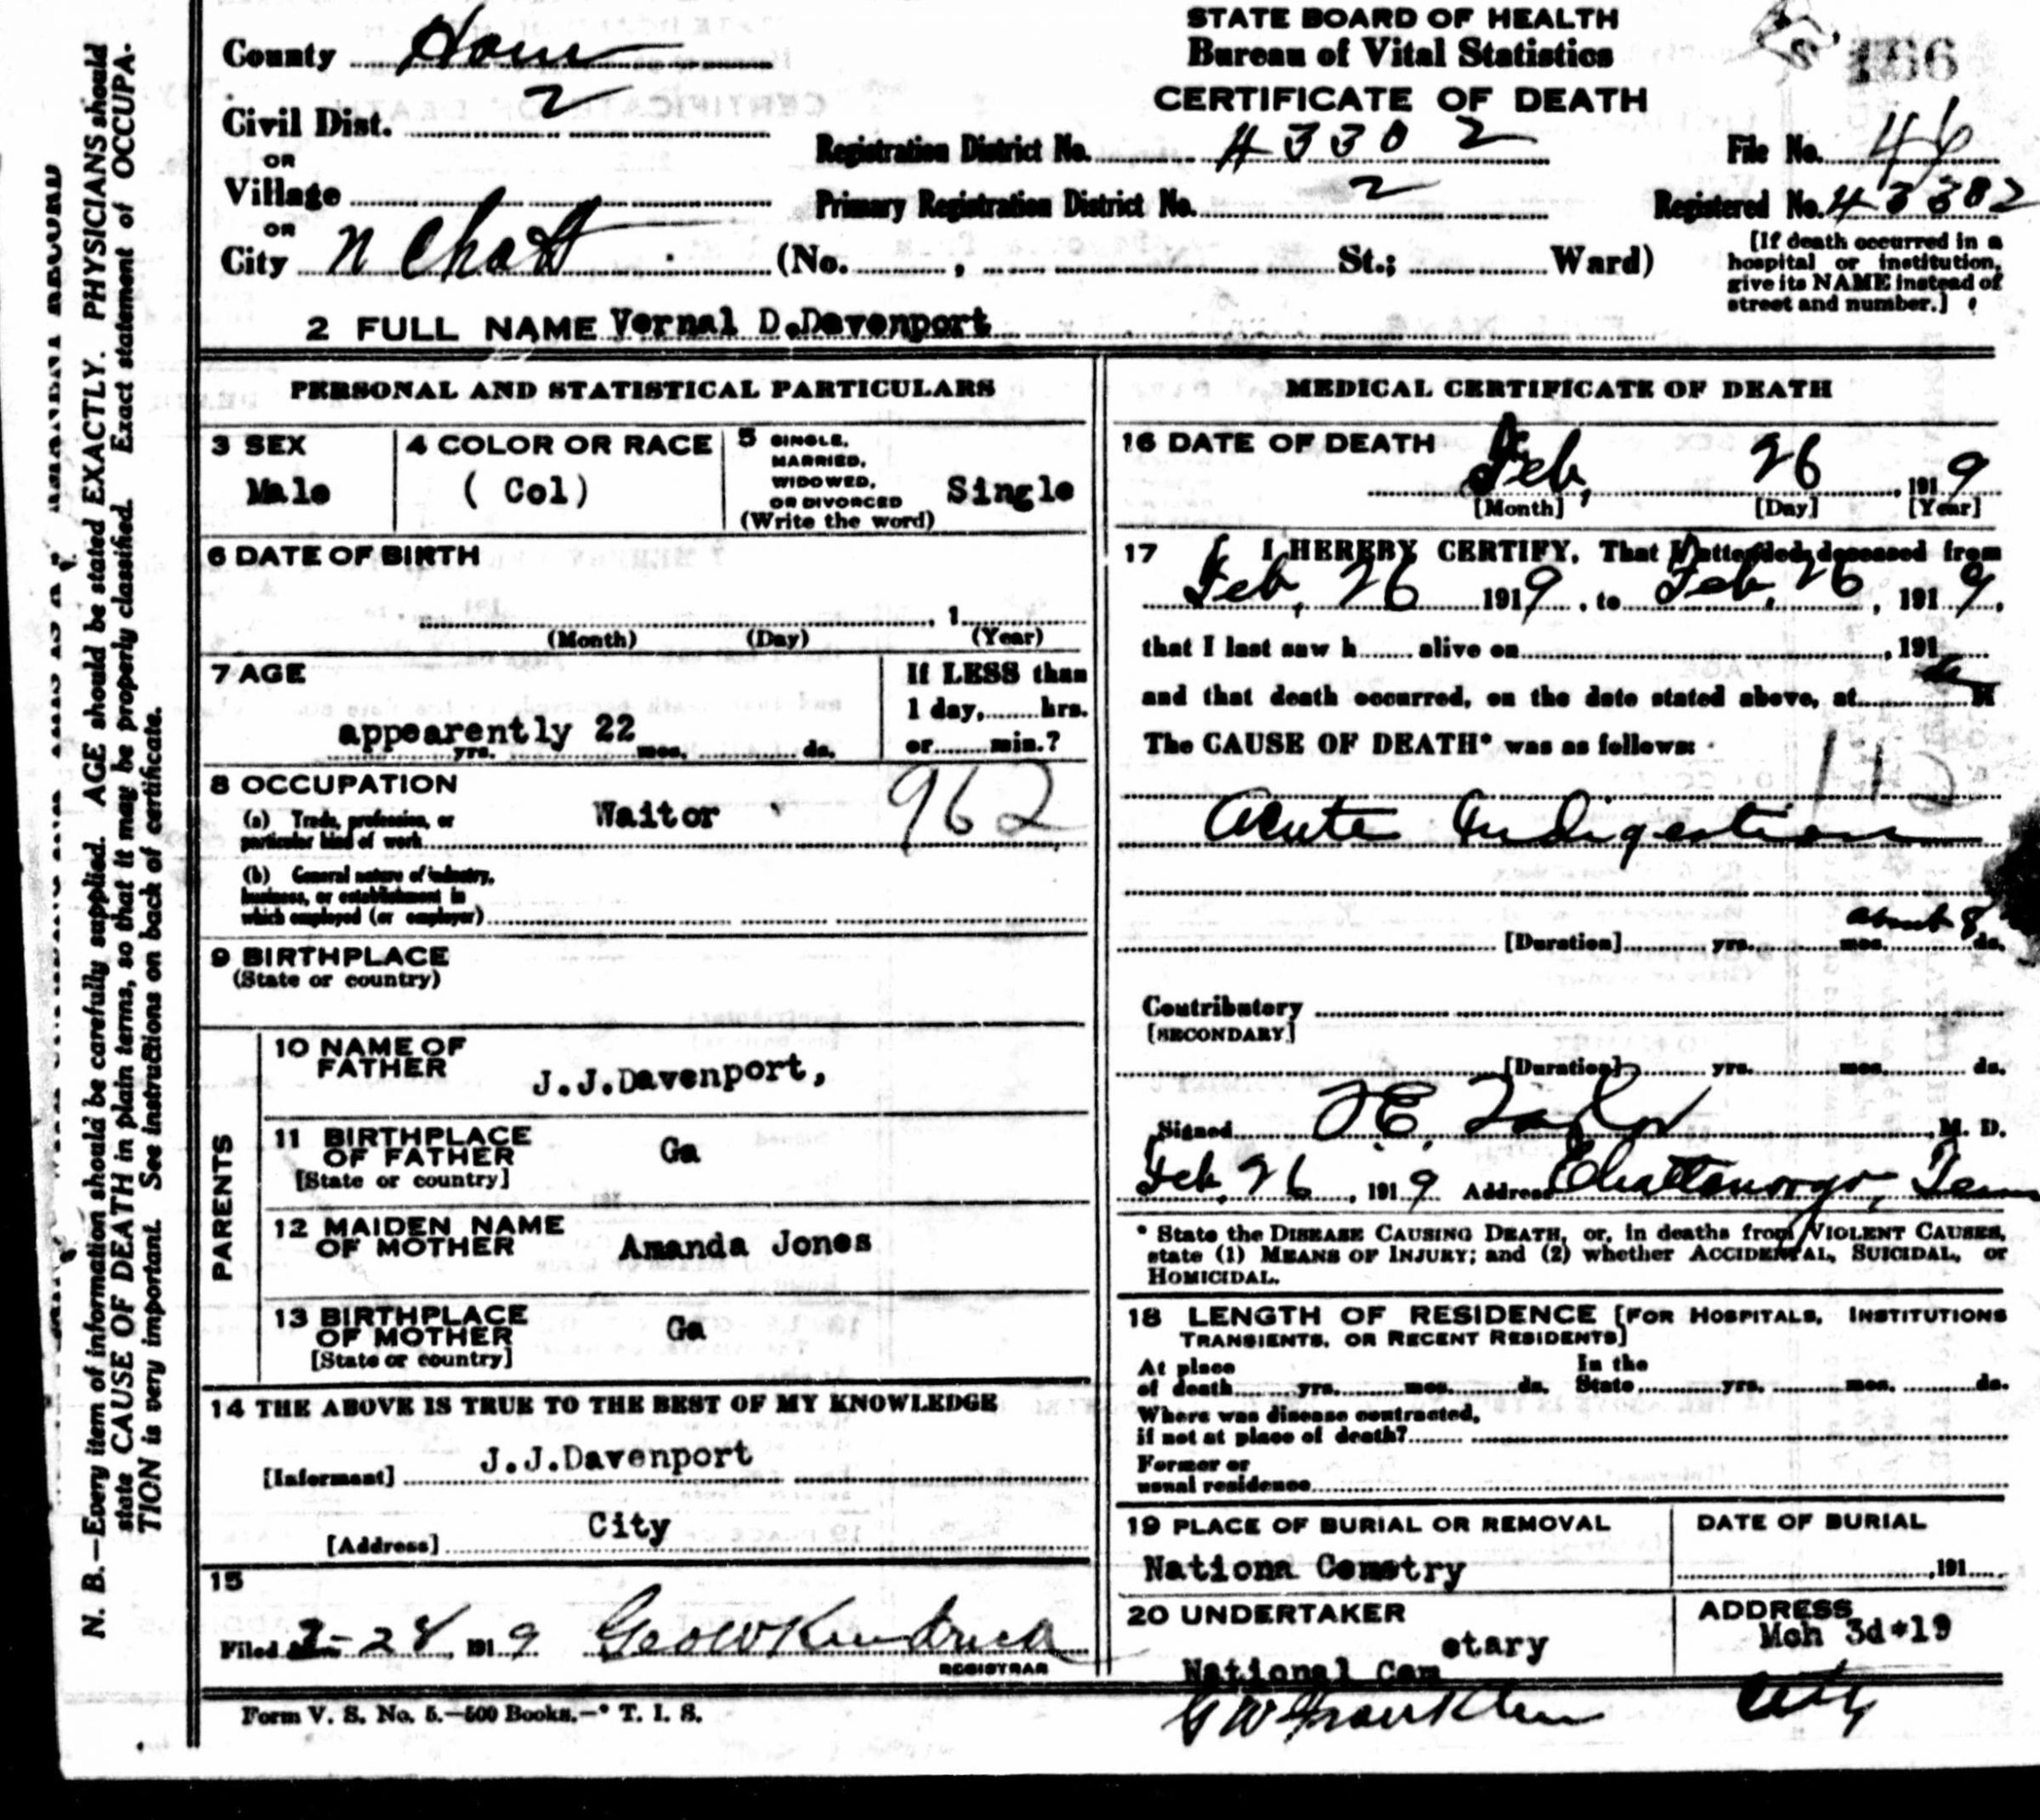 STATE BOARD OF HEALTH
Bureau of Vital Statistics
CERTIFICATE OF DEATH
166
County Ham
Civil Dist. 2
OR
Village
OR
City N Chatt (No. , St.; Ward)
Registration District No. 43302
Primary Registration District No. 2
File No. 46
Registered No. 43382
[If death occurred in a
hospital or institution,
give its NAME instead of
street and number.]
2 FULL NAME Vernal D.Davenport
PERSONAL AND STATISTICAL PARTICULARS
3 SEX
Male
4 COLOR OR RACE
( Col)
5 SINGLE,
MARRIED,
WIDOWED,
OR DIVORCED
(Write the word)
Single
6 DATE OF BIRTH
, 1
(Month) (Day) (Year)
7 AGE
appearently 22
yrs. mos. ds.
If LESS than
1 day, hrs.
or min.?
8 OCCUPATION
(a) Trade, profession, or
particular kind of work
Waitor
962
(b) General nature of industry,
business, or establishment in
which employed (or employer)
9 BIRTHPLACE
(State or country)
PARENTS
10 NAME OF
FATHER
J.J.Davenport,
11 BIRTHPLACE
OF FATHER
[State or country]
Ga
12 MAIDEN NAME
OF MOTHER
Amanda Jones
13 BIRTHPLACE
OF MOTHER
[State or country]
Ga
14 THE ABOVE IS TRUE TO THE BEST OF MY KNOWLEDGE
[Informant] J.J.Davenport
[Address] City
15
Filed 2-28, 1919 Geo W Kendrick
REGISTRAR
Form V. S. No. 5.—500 Books.—* T. I. S.
MEDICAL CERTIFICATE OF DEATH
16 DATE OF DEATH
Feb, 26, 1919
[Month] [Day] [Year]
17 I HEREBY CERTIFY, That I attended deceased from
Feb, 26 1919, to Feb, 26, 1919,
that I last saw h alive on , 191
and that death occurred, on the date stated above, at M
The CAUSE OF DEATH* was as follows:
Acute Indigestion
about 8
[Duration] yrs. mos. ds.
Contributory
[SECONDARY]
[Duration] yrs. mos. ds.
Signed Taylor, M. D.
Feb, 26, 1919 Address Chattanooga, Tenn
* State the DISEASE CAUSING DEATH, or, in deaths from VIOLENT CAUSES,
state (1) MEANS OF INJURY; and (2) whether ACCIDENTAL, SUICIDAL, or
HOMICIDAL.
18 LENGTH OF RESIDENCE [FOR HOSPITALS, INSTITUTIONS
TRANSIENTS, OR RECENT RESIDENTS]
At place
of death yrs. mos. ds.
In the
State yrs. mos. ds.
Where was disease contracted,
if not at place of death?
Former or
usual residence
19 PLACE OF BURIAL OR REMOVAL
Nationa Cemetry
DATE OF BURIAL
, 191
20 UNDERTAKER
etary
National Cem
G W Franklin
ADDRESS
Mch 3d*19
City
N. B.—Every item of information should be carefully supplied. AGE should be stated EXACTLY. PHYSICIANS should
state CAUSE OF DEATH in plain terms, so that it may be properly classified. Exact statement of OCCUPA-
TION is very important. See instructions on back of certificate.